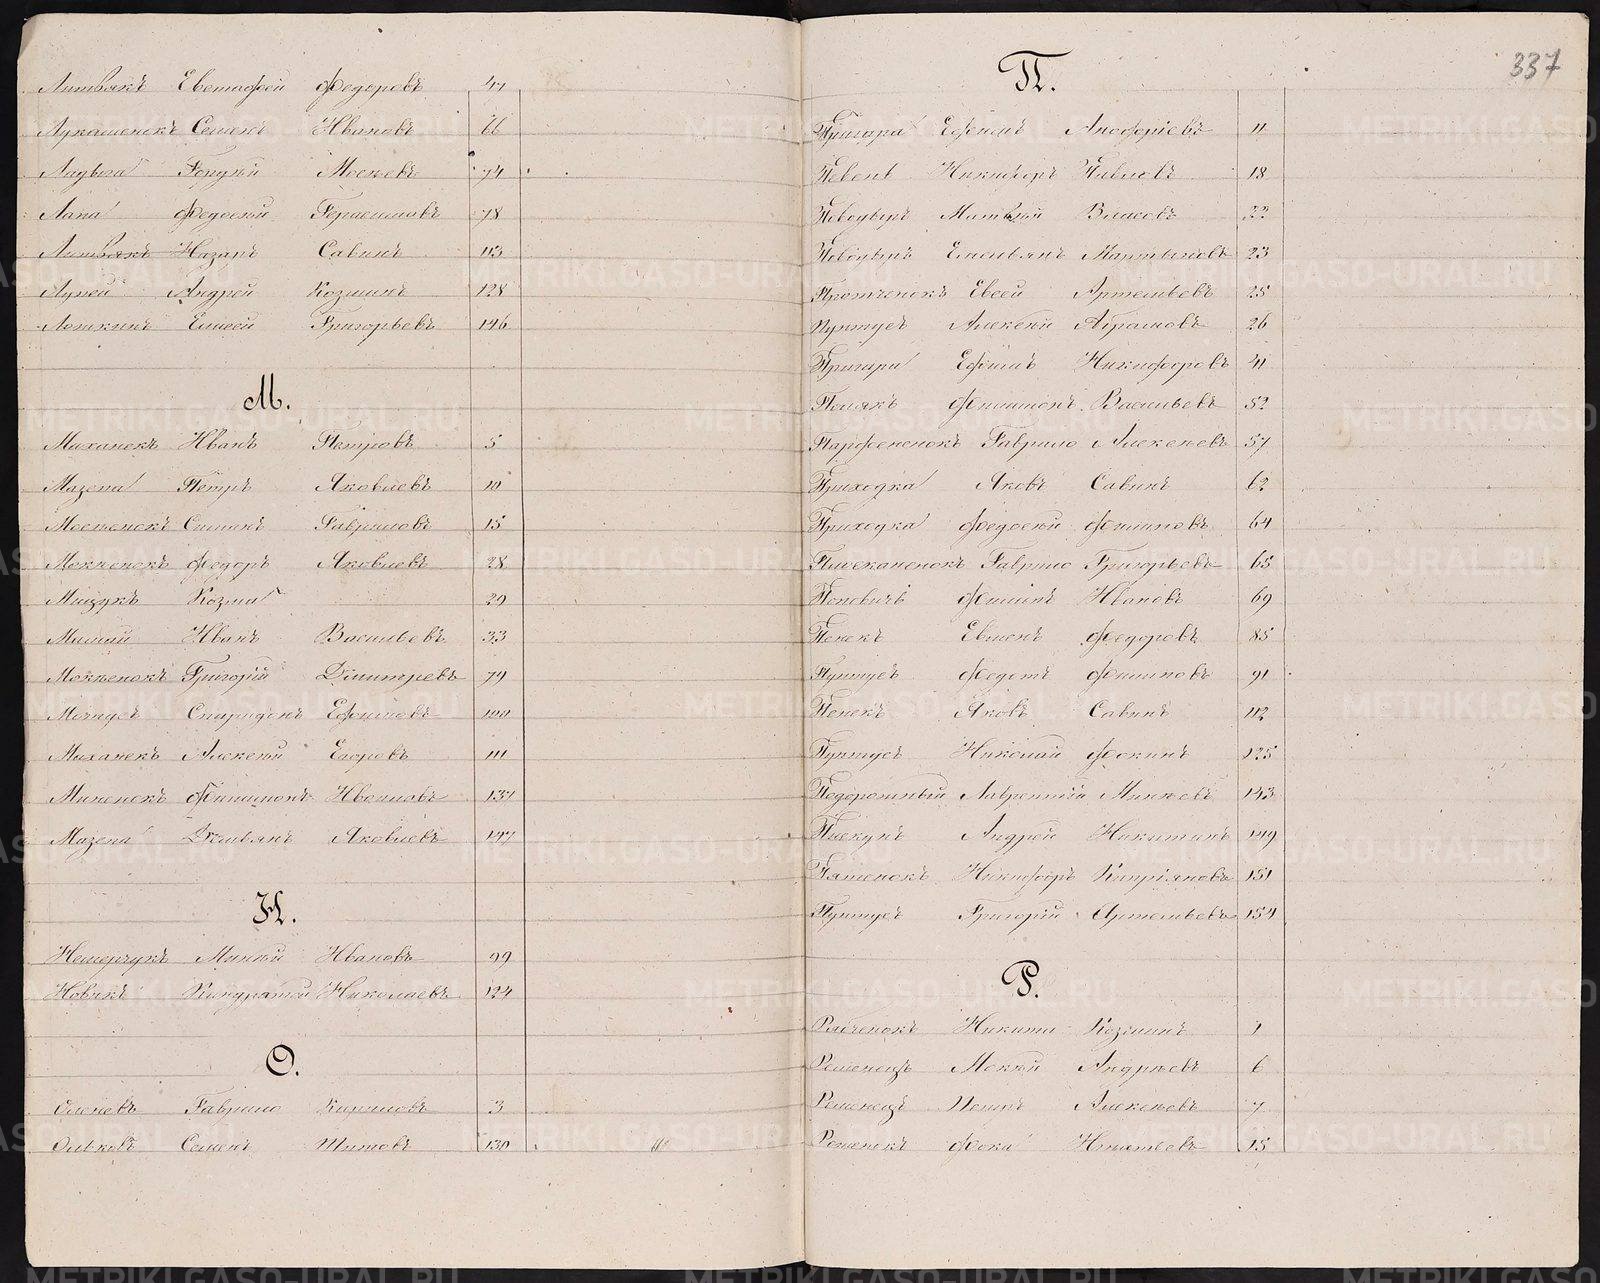 Литвакъ Евстафей Федоровъ 44
Лукашенокъ Семенъ Ивановъ 66
Ладыга Гордѣй Мосѣевъ 74
Лапа Федосѣй Герасимовъ 78
Литвакъ Назаръ Савинъ 113
Лупей Андрей Козминъ 128
Лошкинъ Елисей Григорьевъ 146
М.
Миханокъ Иванъ Петровъ 5
Мазепа Петръ Яковлевъ 10
Мосѣенокъ Гавриловъ 15
Мокѣенокъ Федоръ Яковлевъ 28
Мищукъ Козма 29
Иванъ Васильевъ 33
Мокѣенокъ Григорій Дмитревъ 79
Спиридонъ Ефимовъ 100
Миханокъ Алексѣй Егоровъ 111
Миненокъ Филимонъ Ивановъ 137
Мазепа Емельянъ Яковлевъ 147
Н.
Нешерчукъ Минѣй Ивановъ 99
Новикъ Кондратій Николаевъ 124
О.
Оленевъ Гаврило Кириловъ 3
Ольховъ Семенъ Титовъ 130
337
П.
Пригара Ефимъ Анофріевъ 11
Певень Никифоръ Павловъ 18
Поводыръ Матвѣй Власовъ 22
Поводыръ Емельянъ Мартыновъ 23
Протченокъ Евсей Артемьевъ 25
Пунтусъ Алексѣй Абрамовъ 26
Пригара Ефимъ Никифоровъ 41
Полякъ Филимонъ Васильевъ 52
Парфененокъ Гаврило Алексѣевъ 57
Приходка Яковъ Савинъ 62
Приходка Федосѣй Филиповъ 64
Пилеканенокъ Гаврило Григорьевъ 65
Поповичъ Филипъ Ивановъ 69
Пенекъ Евменъ Федоровъ 85
Пунтусъ Федотъ Филиповъ 91
Пенекъ Яковъ Савинъ 112
Пунтусъ Николай Фокинъ 125
Подорожный Лаврентій Минѣевъ 143
Пискунъ Андрей Никитинъ 149
Пятенокъ Никифоръ Кипріяновъ 151
Пунтусъ Григорій Артемьевъ 154
Р.
Рабченокъ Никита Козминъ 1
Роменецъ Мокѣй Андрѣевъ 6
Роменецъ Петръ Алексѣевъ 7
Роменокъ Фока Игнатьевъ 15
METRIKI.GASO-URAL.RU